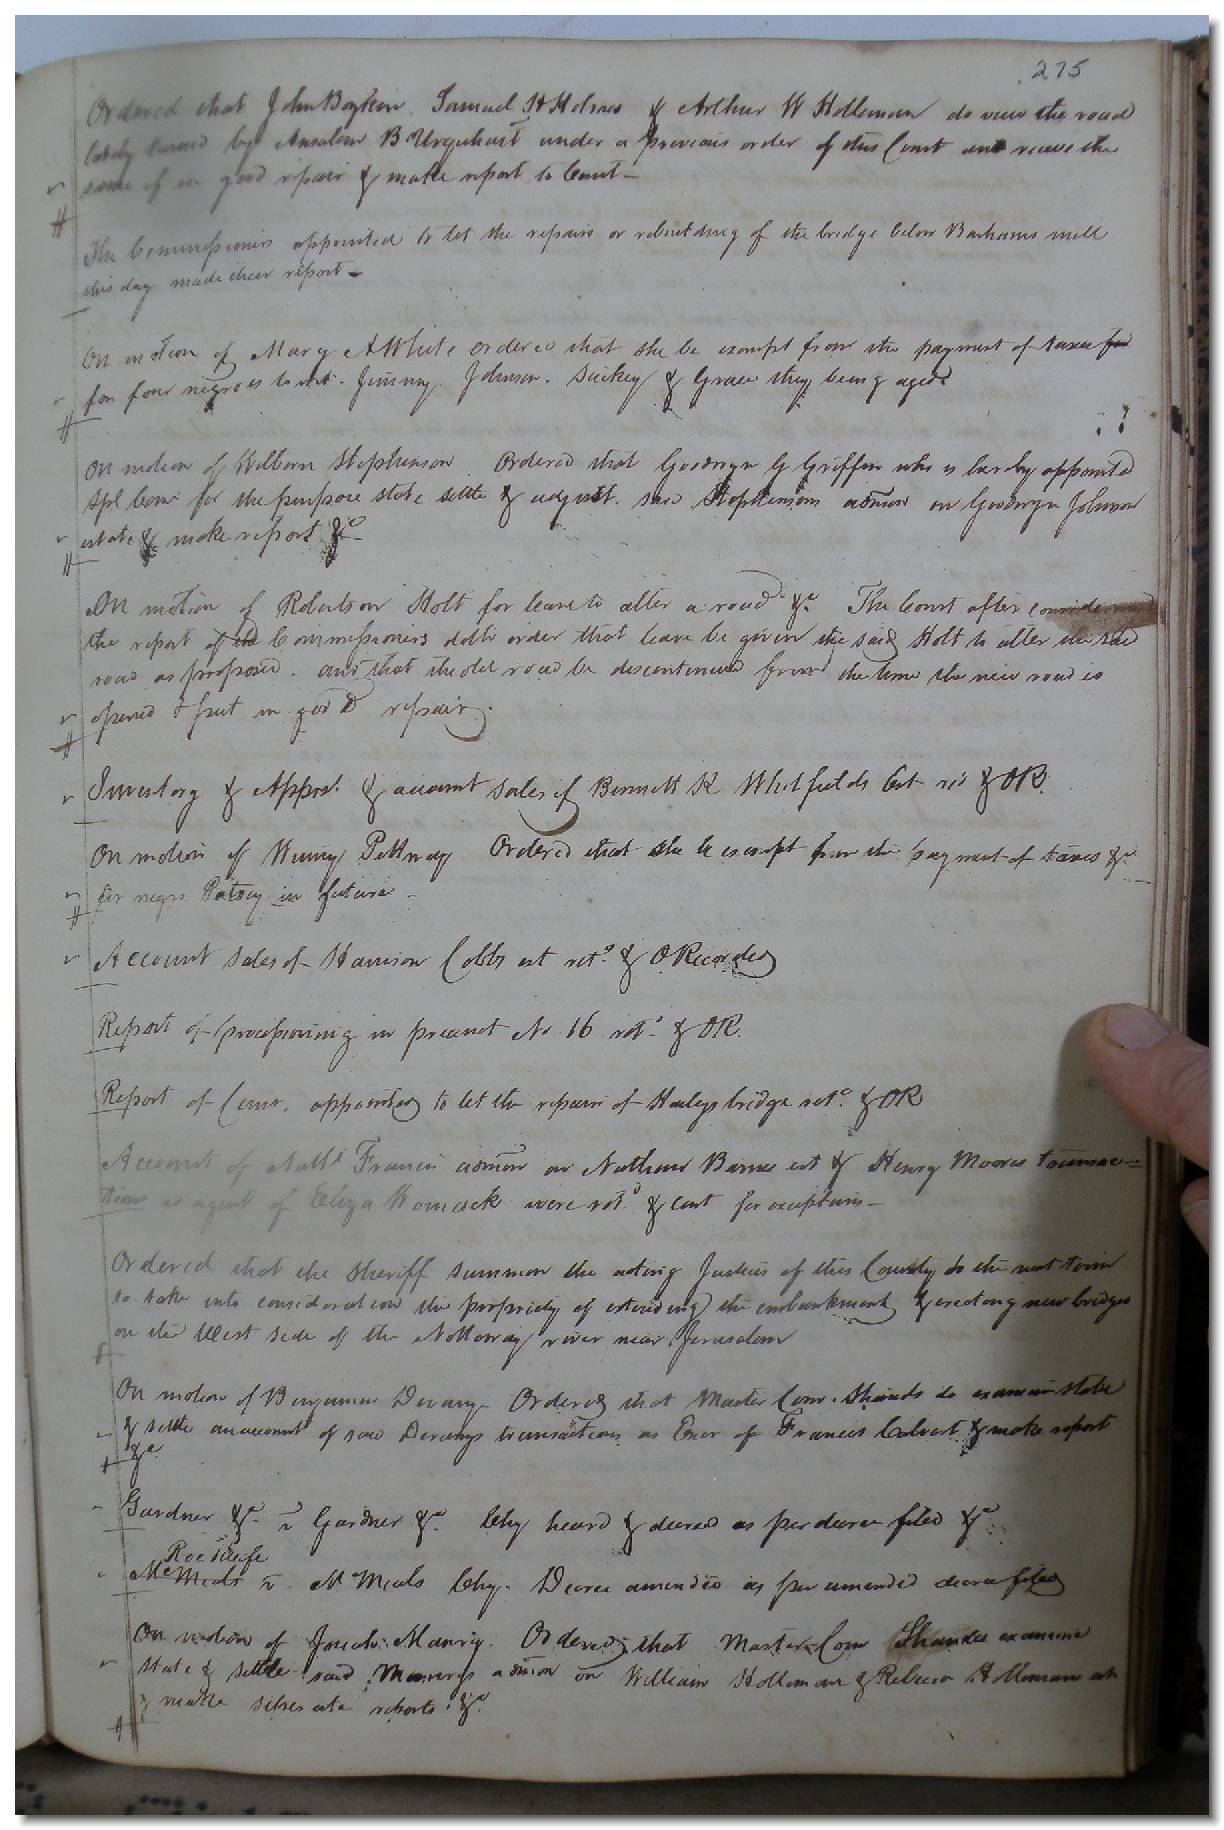 275
Ordered that John Boykin Samuel H Holmes & Arthur W Holleman do view the road
lately turned by Ansalom B Urquhart under a previous order of this Court and receive the
same if in good repair & make report to Court
The Commissioners appointed to let the repairs or rebuilding of the bridge below Barhams mill
this day made their report
On motion of Mary A White ordered that she be exempt from the payment of taxes for
for four negroes to wit. Jimmy Johnson. Suckey & Grace they being aged
On motion of Wilborn Stephenson Ordered that Goodwyn G Griffin who is hereby appointed
Spl Comr for the purpose state settle & adjust. said Stephensons admon on Goodwyn Johnson
estate & make report &c
On motion of Robertson Holt for leave to alter a road &c. The Court after considering
the report of the Commissioners doth order that leave be given the said Holt to alter the said
road as proposed. and that the old road be discontinued from the time the new road is
opened & put in good repair.
Inventory & Apprst. & account sales of Bennett K Whitfields Est & OR.
On motion of Winny Pettway Ordered that she be exempt from the payment of taxes &c
for negro Patsey in future
Account sales of Harrison Cobbs est retd. & O Recorded
Report of processioning in precinct No 16 retd & OR.
Report of Comr. appointed to let the repairs of Haleys bridge retd. & OR
Account of Nathl Francis admon on Nathan Barnes est & Henry Moores transac=
tions as agent of Eliza Womack were retd. & cont for exceptions
Ordered that the Sheriff summon the acting Justices of this County to the next term
to take into consideration the propriety of extending the embankment & erecting new bridges
on the West side of the Nottoway river near Jerusalem
On motion of Benjamin Devany Ordered that Master Com. Shands do examine state
& settle an account of said Devanys transactions as Exor of Francis Calvert & make report
&c
Gardner &c. v Gardner &c. Chy heard & decreed as per decree filed &c
Roe & wife
McMeals v. McMeals Chy. Decree amended as per amended decree filed
On motion of Josiah Manry. Ordered that Master Com Shands examine
state & settle said Manrys admon on William Holleman & Rebecca Holleman est
& make seperate reports. &c.